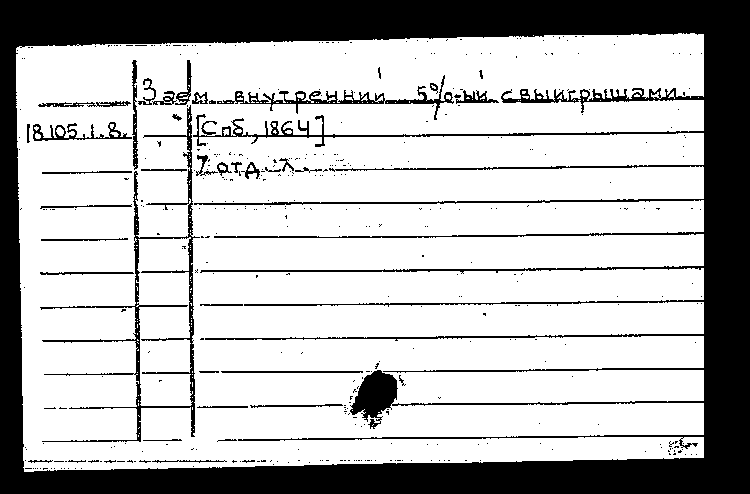 Заем внутренний 5%-ый с выигрышами.
18.105.1.8. [Спб., 1864].
7 отд. л.